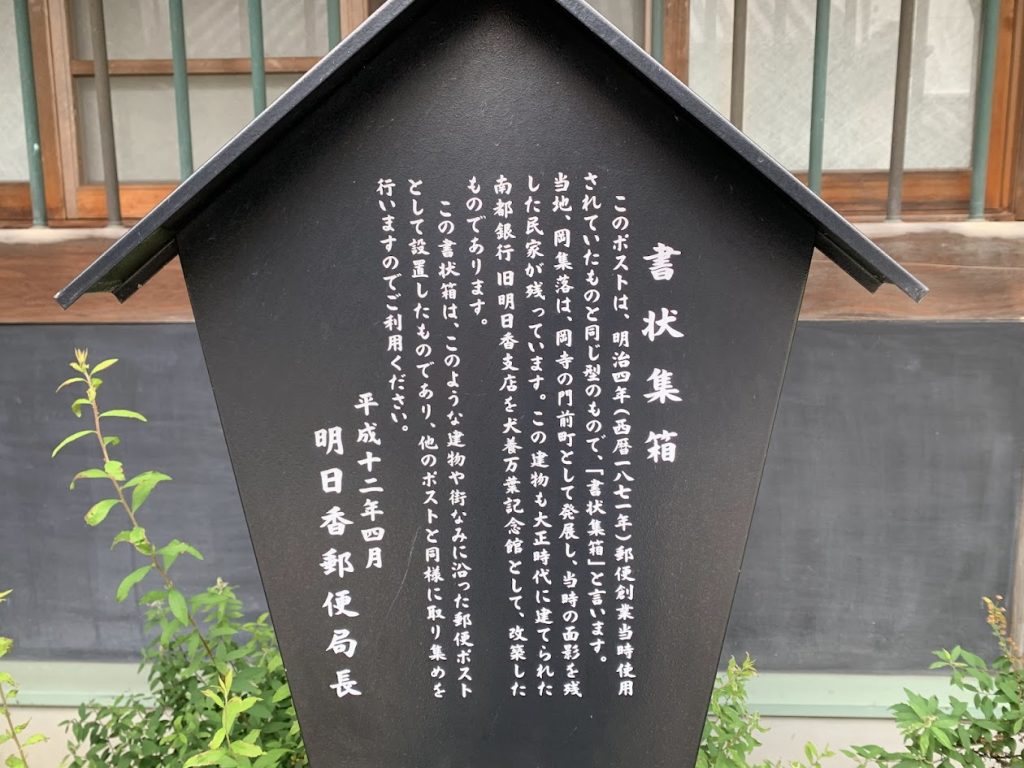 書状集箱
このポストは、明治四年(西暦一八七一年)郵便創業当時使用
されていたものと同じ型のもので、「書状集箱」と言います。
当地、岡集落は、岡寺の門前町として発展し、当時の面影を残
した民家が残っています。この建物も大正時代に建てられた
南都銀行 旧明日香支店を犬養万葉記念館として、改築した
ものであります。
この書状箱は、このような建物や街なみに沿った郵便ポスト
として設置したものであり、他のポストと同様に取り集めを
行いますのでご利用ください。
平成十二年四月
明日香郵便局長